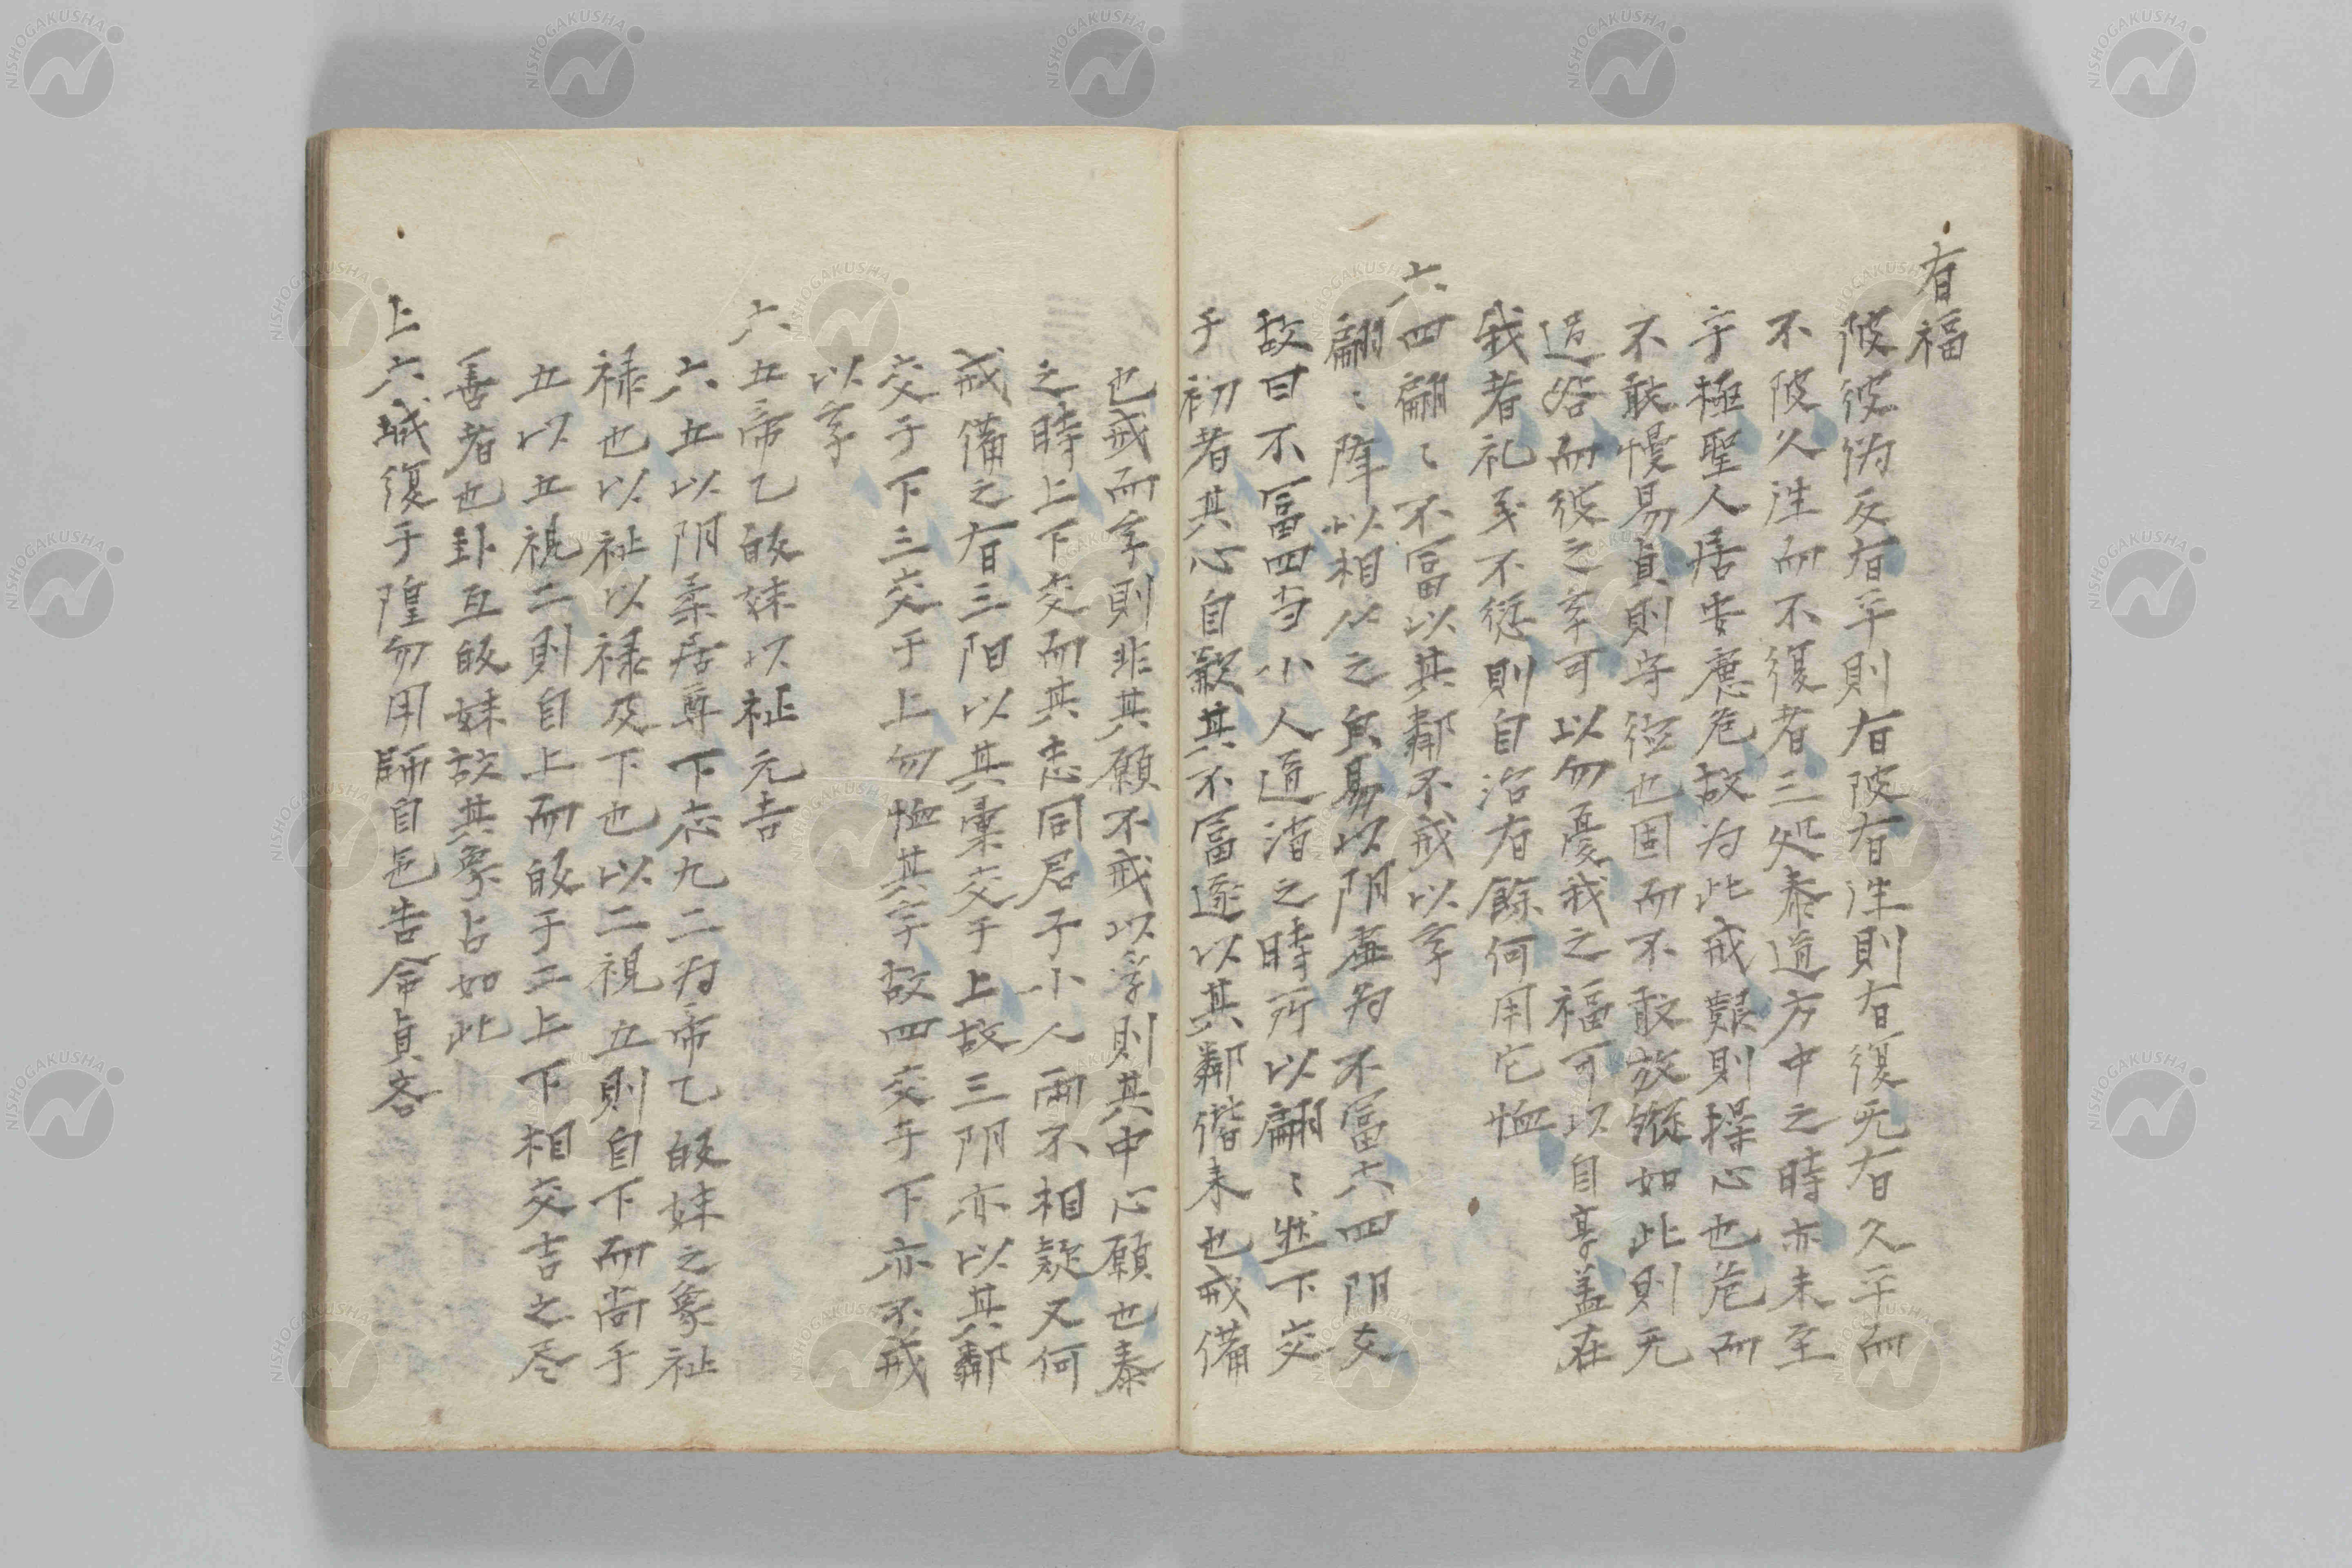 有福
陂彼偽反有平則有陂有往則有復无有久平而
不陂久往而不復者三処泰道方中之時亦未至
于極聖人居安慮危故为此戒艱則操心也危而
不敢慢易貞則守徳也固而不敢放縦如此則无
過咎而彼之孚可以勿憂我之福可以自享盖在
我者礼義不愆則自治有餘何用它恤
六四翩〻不富以其鄰不戒以孚
翩〻降以相从之皃易以阴虚为不富六四阴交
故曰不富四当小人道消之時所以翩〻然下交
于初者其心自歉其不富遂以其鄰偕来也戒備
也戒而孚則非其願不戒以孚則其中心願也泰
之時上下交而其志同君子小人両不相疑又何
戒備之有三阳以其彙交于上故三阴亦以其鄰
交于下三交于上勿恤其孚故四交于下亦不戒
以孚
六五帝乙皈妹以祉元吉
六五以阴柔居尊下応九二为帝乙皈妹之象祉
禄也以祉以禄及下也以二視五則自下而尚于
五以五視二則自上而皈于二上下相交吉之尽
善者也卦互皈妹故其象占如此
上六城復于隍勿用師自邑告命貞吝
NISHOGAKUSHA